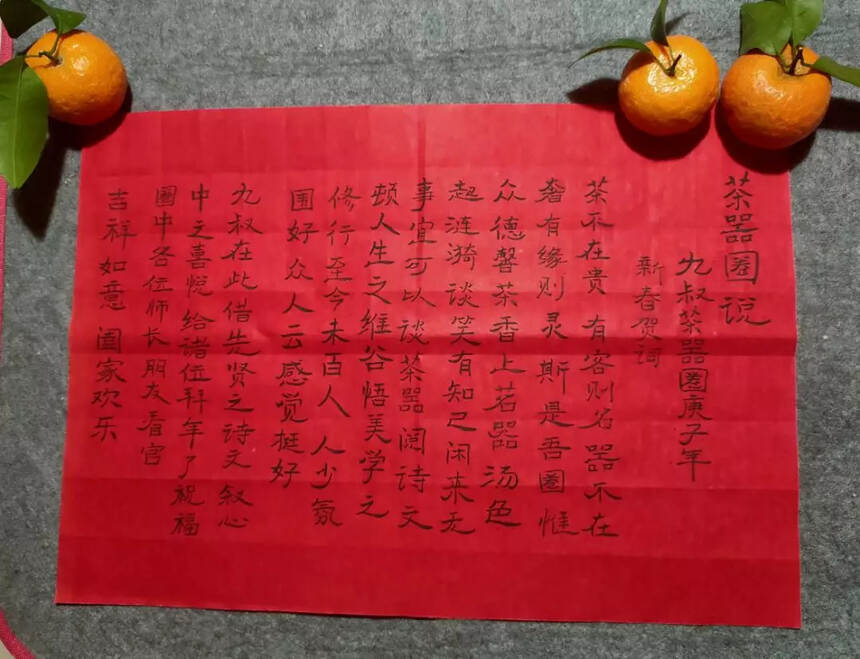 茶器圈说
九叔茶器圈庚子年
新春贺词
茶不在贵 有客则名 器不在
奢有缘则灵 斯是吾圈 惟
众德馨茶香上茗器 汤色
起涟漪谈笑有知己闲来无
事宜可以谈茶器阅诗文
顿人生之维谷悟美学之
修行至今未百人 人少氛
围好 众人云感觉挺好
九叔在此借先贤之诗文叙心
中之喜悦给诸位拜年了祝福
圈中各位师长朋友看官
吉祥如意 阖家欢乐